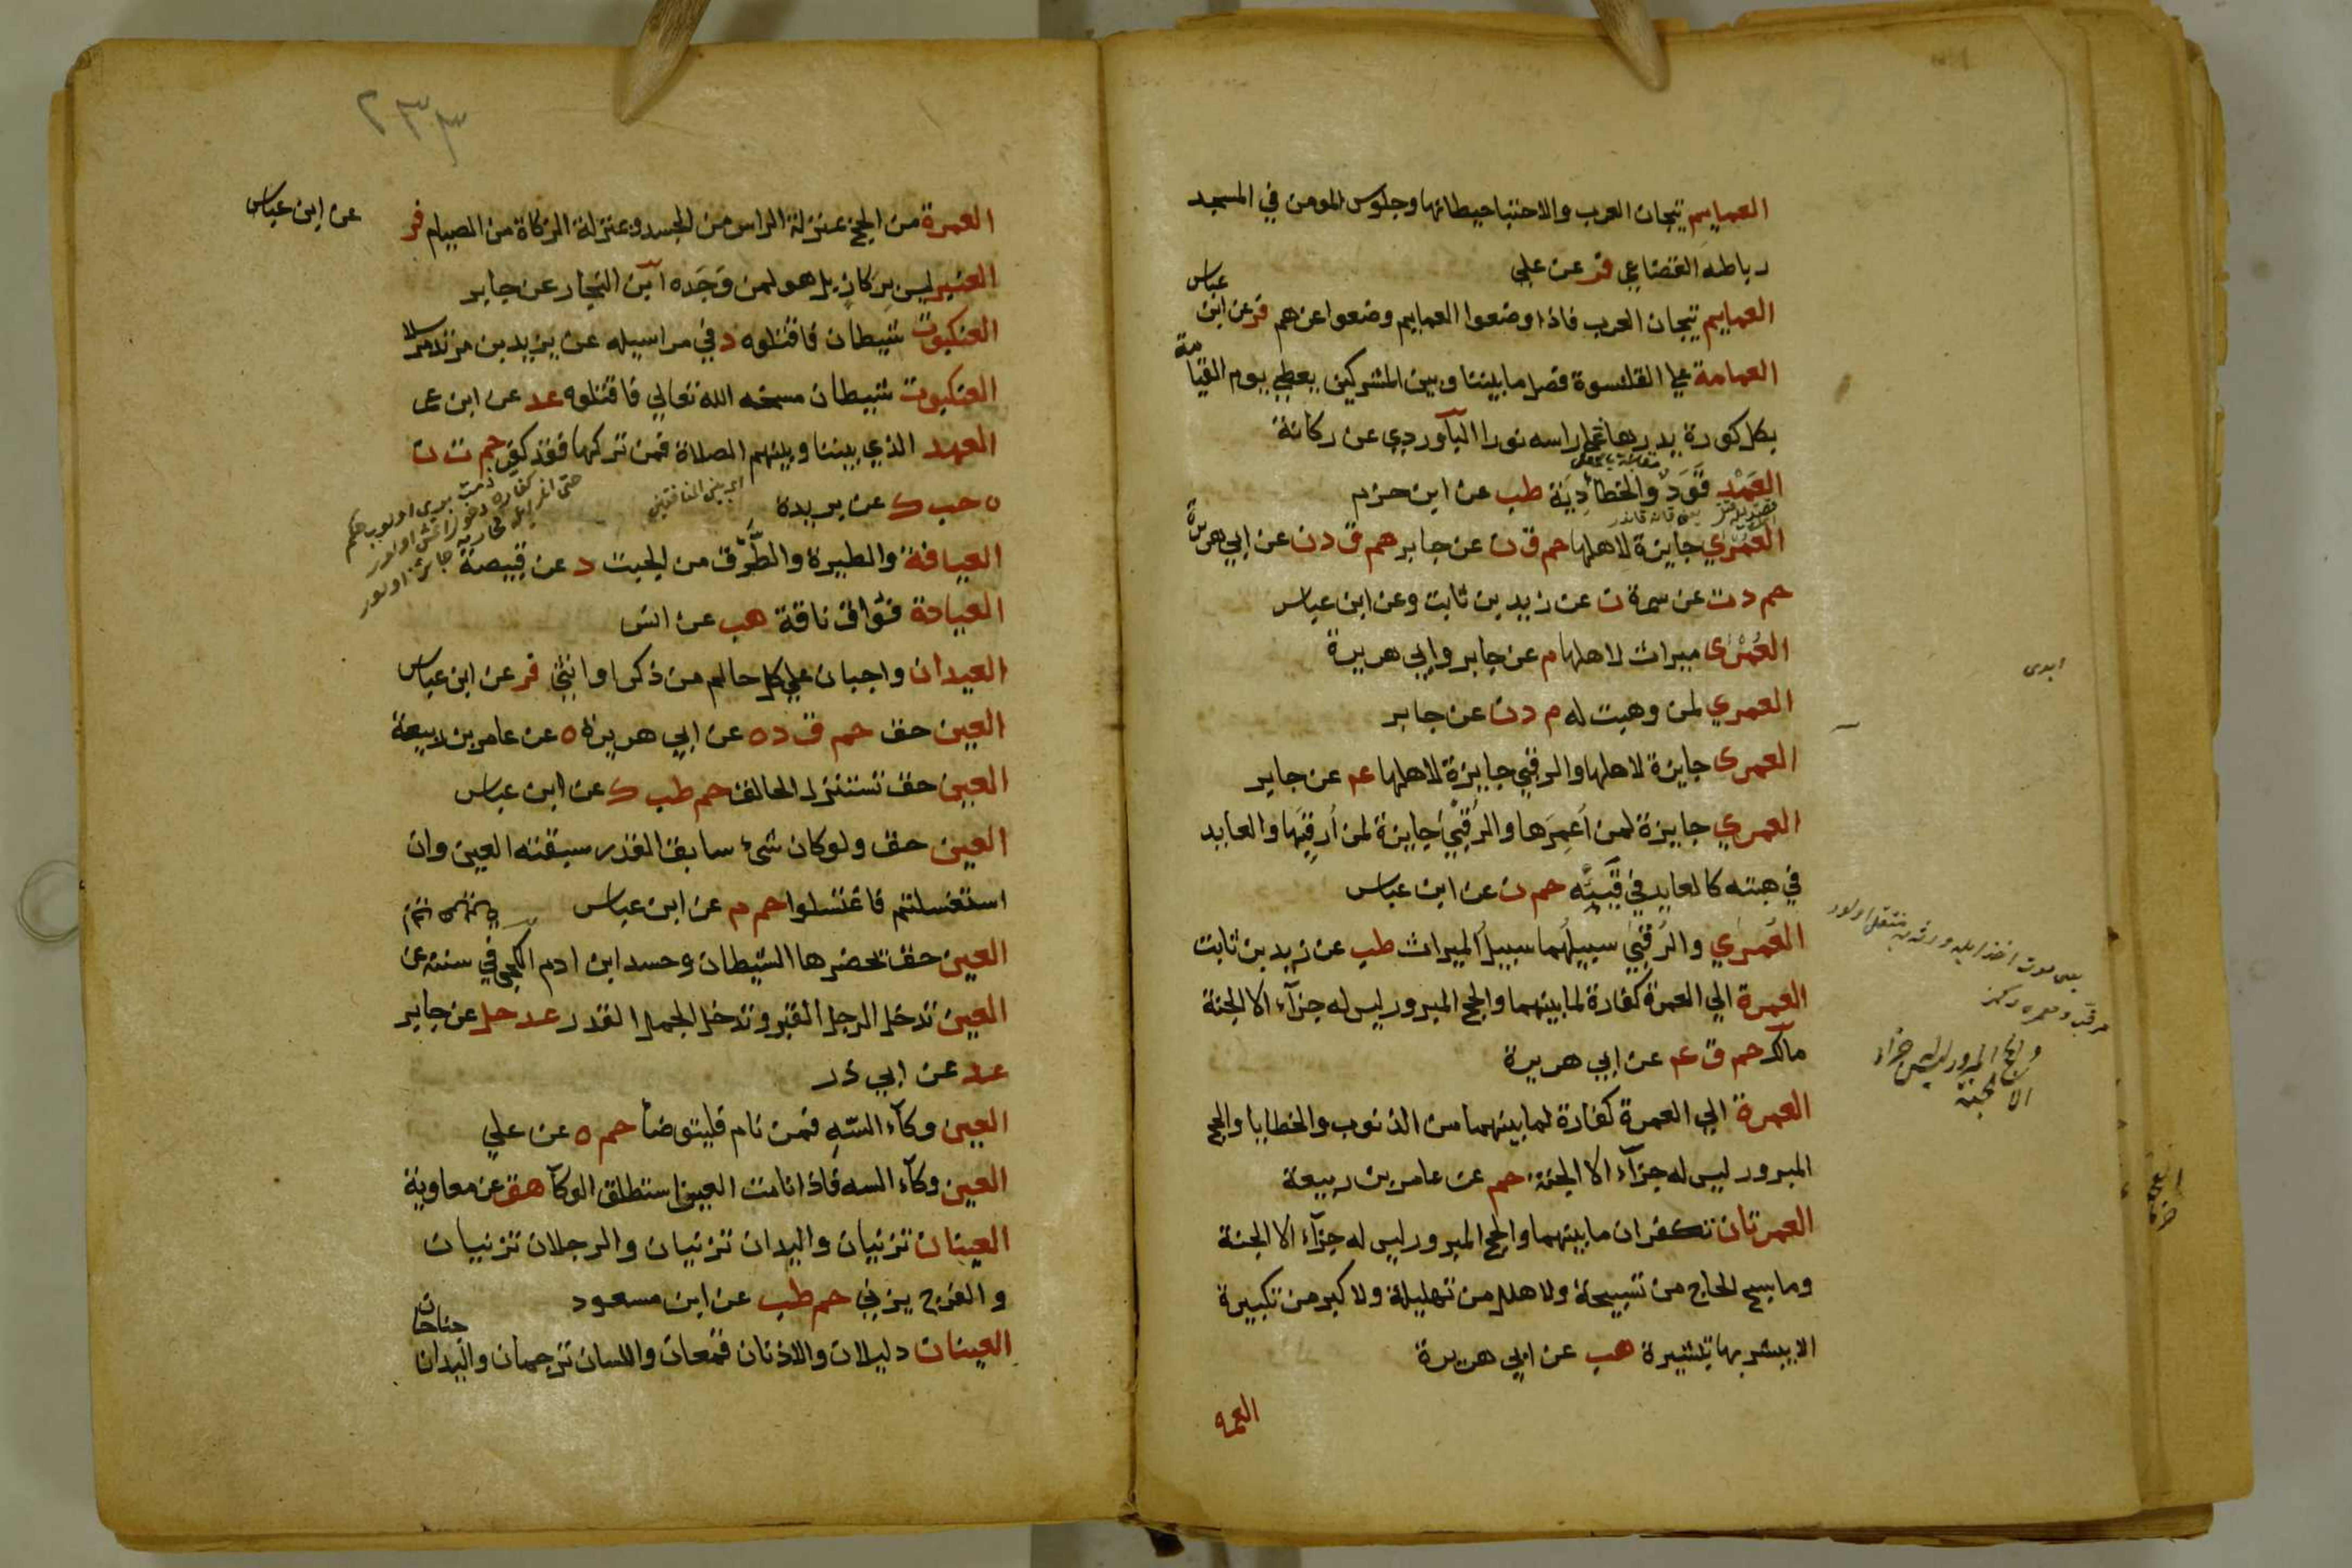 العمايم تيجان العرب والاحتبا حيطانها وجلوس المومن في المسجد
رباطه القضاعي فر عن علي
العمايم تيجان العرب فاذا وضعوا العمايم وضعوا عزهم فر عن ابن عباس
العمامة علي القلنسوة فصل ما بيننا وبين المشركين يعطي يوم القيامة
بكل كورة يدورها علي راسه نورا الباوردي عن ركانة
العَمْد قَوَد والخطأ دِيَة طب عن ابن حزم
العُمْري جايزة لاهلها حم ق ن عن جابر حم ق د ن عن ابي هريرة
حم د ت عن سمرة ن عن زيد بن ثابت وعن ابن عباس
العُمْرى ميراث لاهلها م عن جابر وابي هريرة
العمري لمن وهبت له م د ن عن جابر
العمرى جايزة لاهلها والرقبي جايزة لاهلها عم عن جابر
العمري جايزة لمن أعمِرَها والرُقبيٰ جايزة لمن أُرقِبَها والعايد
في هبته كالعايد في قَيئِه حم ن عن ابن عباس
العُمرٰي والرُقبيٰ سبيلُهما سبيلُ الميراث طب عن زيد بن ثابت
العمرة الي العمرة كفارة لما بينهما والحج المبرور ليس له جزآء الا الجنة
مالك حم ق عم عن ابي هريرة
العمرة الي العمرة كفارة لما بينهما من الذنوب والخطايا والحج
المبرور ليس له جزآء الا الجنة حم عن عامر بن ربيعة
العمرتان تكفران ما بينهما والحج المبرور ليس له جزآء الا الجنة
وما سبح الحاج من تسبيحة ولا هلل من تهليلة ولا كبر من تكبيرة
الا يبشر بها تبشيرة هب عن ابي هريرة
العمرة
والحج المبرور ليس له جزاء
الا الجنة
٢٣٣
العمرة من الحج بمنزلة الراس من الجسد وبمنزلة الزكاة من الصيام فر عن ابن عباس
العنبر ليس بِرَكازٍ بل هو لمن وَجَدَه ابن النجار عن جابر
العنكبوت شيطان فاقتلوه د في مراسيله عن يزيد بن مرثد مرسلا
العنكبوت شيطان مسخه الله تعالي فاقتلوه عد عن ابن عمر
العهد الذي بيننا وبينهم الصلاة فمن تركها فقد كفر حم ت ن
ه حب ك عن بريدة
اي بين المنافقين
العيافة والطيرة والطَّرْق من الجبت د عن قبيصة
العيادة فُوَاق ناقة هب عن انس
العيدان واجبان علي كل حالم من ذكر او انثي فر عن ابن عباس
العين حق حم ق د ه عن ابي هريرة ه عن عامر بن ربيعة
العين حق تستنزل الحالق حم طب ك عن ابن عباس
العين حق ولو كان شئ سابق القدر سبقته العين وان
استغسلتم فاغتسلوا حم م عن ابن عباس
العين حق تحضرها الشيطان وحسد ابن ادم الكجي في سننه عن
العين تدخل الرجل القبر وتدخل الجمل القدر عد حل عن جابر
عد عن ابي ذر
العين وكآء السّهِ فمن نام فليتوضأ حم ه عن علي
العين وكآء السه فاذا نامت العين استطلق الوكآ هق عن معاوية
العينان تزنيان واليدان تزنيان والرجلان تزنيان
والفرج يزني حم طب عن ابن مسعود
العينان دليلان والاذنان قمعان واللسان ترجمان واليدان جناحان